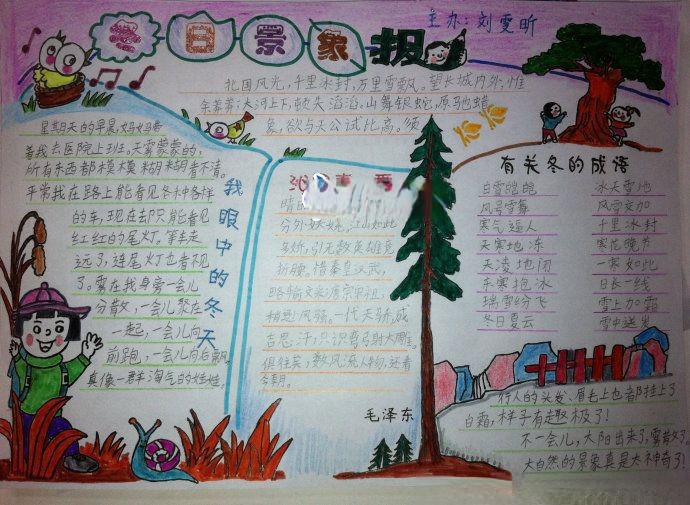 冬日景象报
主办:刘雯昕
北国风光,千里冰封,万里雪飘。望长城内外,惟
余莽莽;大河上下,顿失滔滔。山舞银蛇,原驰蜡
象,欲与天公试比高。须
晴日
分外妖娆。江山如此
多娇,引无数英雄竞
折腰。惜秦皇汉武,
略输文采;唐宗宋祖,
稍逊风骚。一代天骄,成
吉思汗,只识弯弓射大雕。
俱往矣,数风流人物,还看
今朝。
毛泽东
我眼中的冬天
星期天的早晨,妈妈带
着我去医院上班。天雾蒙蒙的,
所有东西都模模糊糊看不清。
平常我在路上能看见各种各样
的车,现在却只能看见
红红的尾灯。等走
远了,连尾灯也看不见
了。雾在我身旁一会儿
分散,一会儿聚在
一起,一会儿向
前跑,一会儿向后飘,
真像一群淘气的娃娃。
行人的头发、眉毛上也都挂上了
白霜,样子有趣极了!
不一会儿,太阳出来了,雾散了,
大自然的景象真是太神奇了!
有关冬的成语
白雪皑皑 冰天雪地
风号雪舞 风雪交加
寒气逼人 千里冰封
天寒地冻 寒花晚节
天凌地闭 一寒如此
东寒抱冰 日长一线
瑞雪纷飞 雪上加霜
冬日夏云 雪中送炭